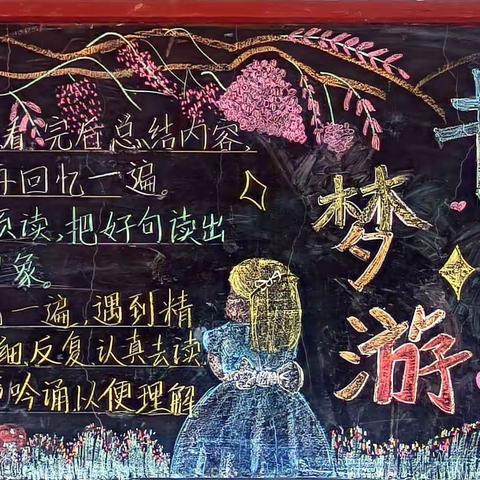 看完后总结内容,
回忆一遍。
读,把好句读出
象。
一遍,遇到精
细,反复认真去读
吟诵以便理解
梦
游